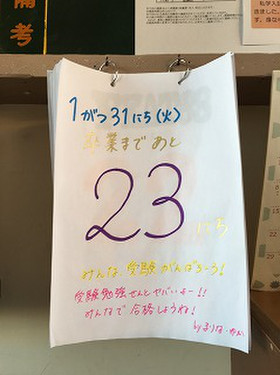 備考
1がつ31にち(火)
卒業まであと
23
にち
みんな受験がんばろーう!
受験勉強せんとヤバいよー!!
みんなで合格しようね!